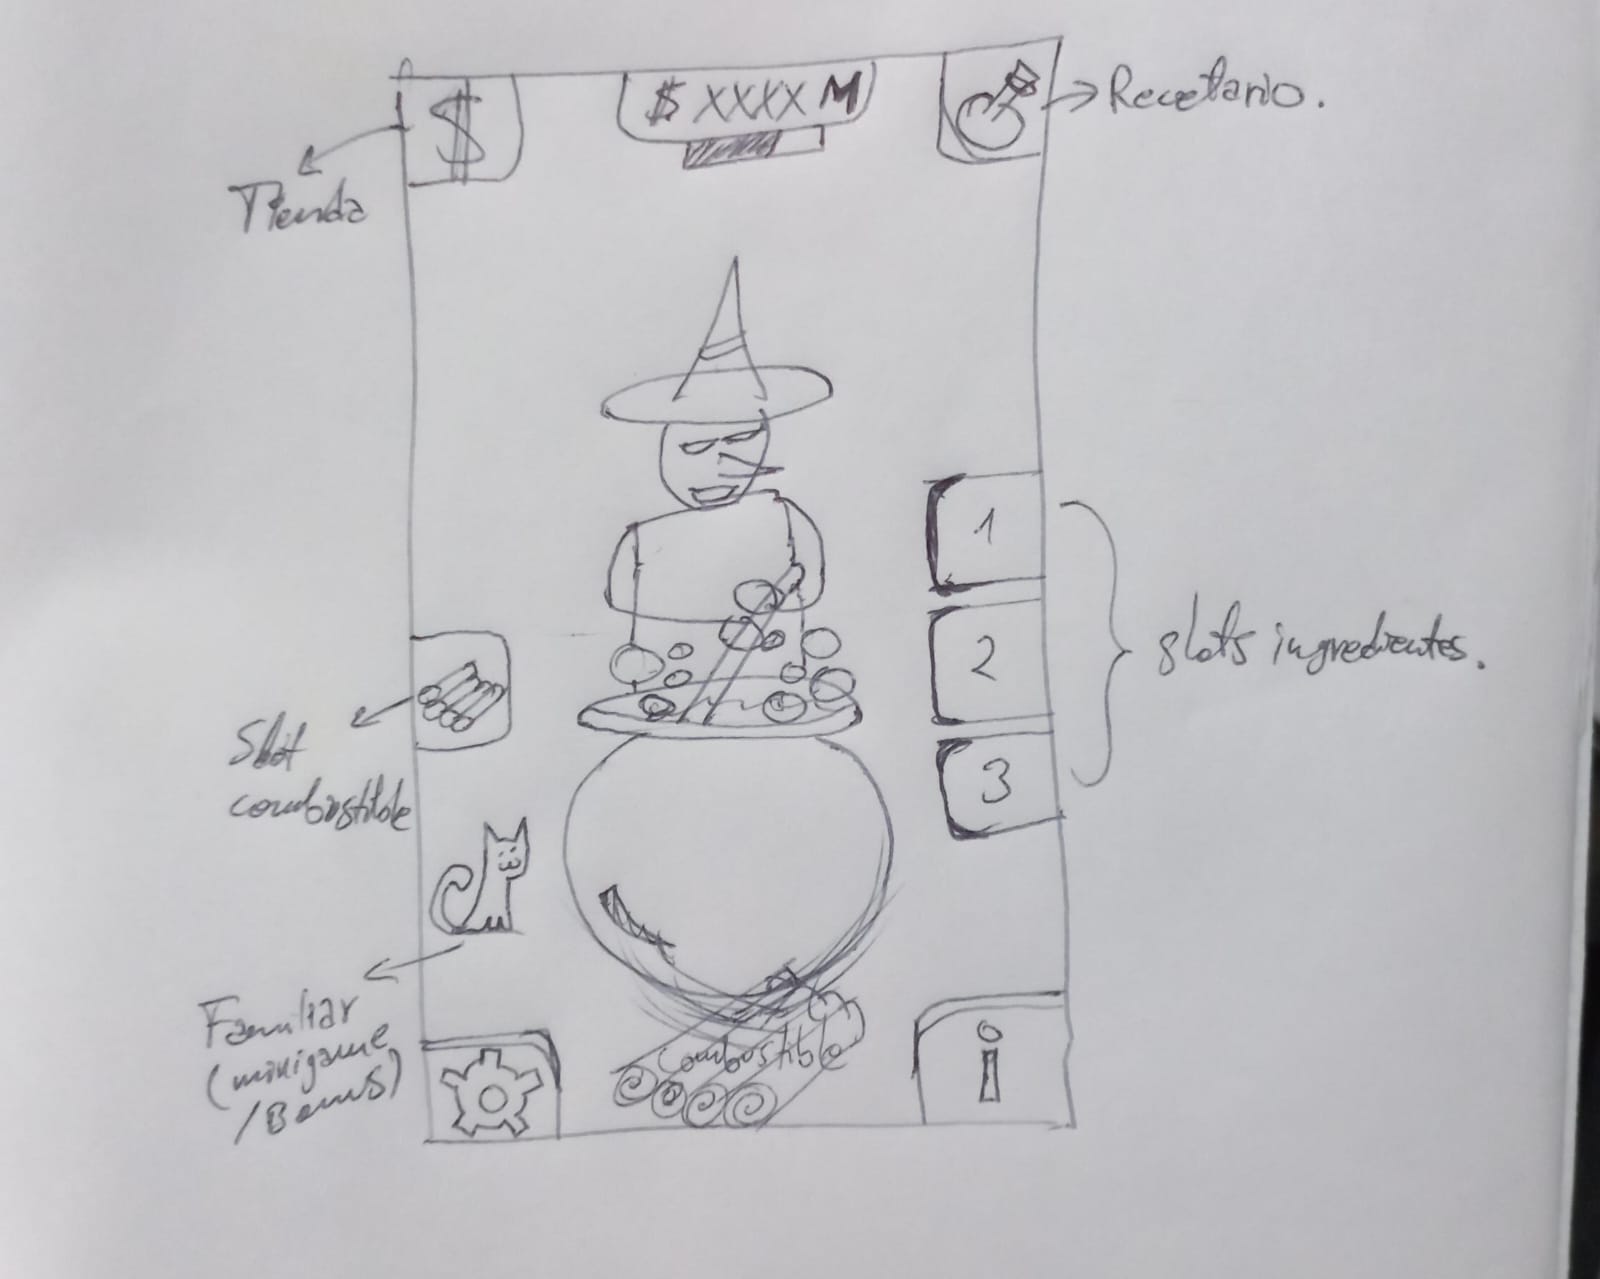 $
$ XXXX M
Recetario.
Tienda
1
2
slots ingredientes.
3
Slot
combustible
Familiar
(minigame
/Bonus)
combustible
i